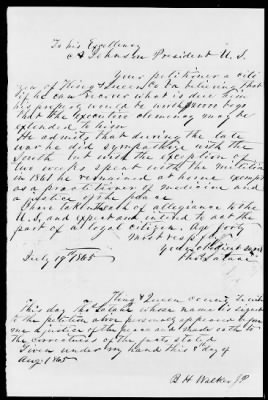 To his Excellency
A Johnson President U.S.
Your petitioner a citi
zen of King & Queen Co Va believing that
if he can recover what is due him
his property would be worth $20000 begs
that the executive clemency may be
extended to him
He admits that during the late
war he did sympathise with the
South but with the exception of
two weeks spent with the militia
in 1861 he remained at home exempt
as a practitioner of medicine and
a justice of the peace
I have taken the oath of allegiance to the
U.S. and expect and intend to act the
part of a loyal citizen. Age forty
Most respectfully
Your obedient servt
July 19th 1865
King & Queen County
This day Tho Latané whose name is signed
to the petition above personally appeared before
me a justice of the peace and made oath to
the correctness of the facts stated
Given under my hand this 8 day of
Augt 1865
B. H. Walker JP